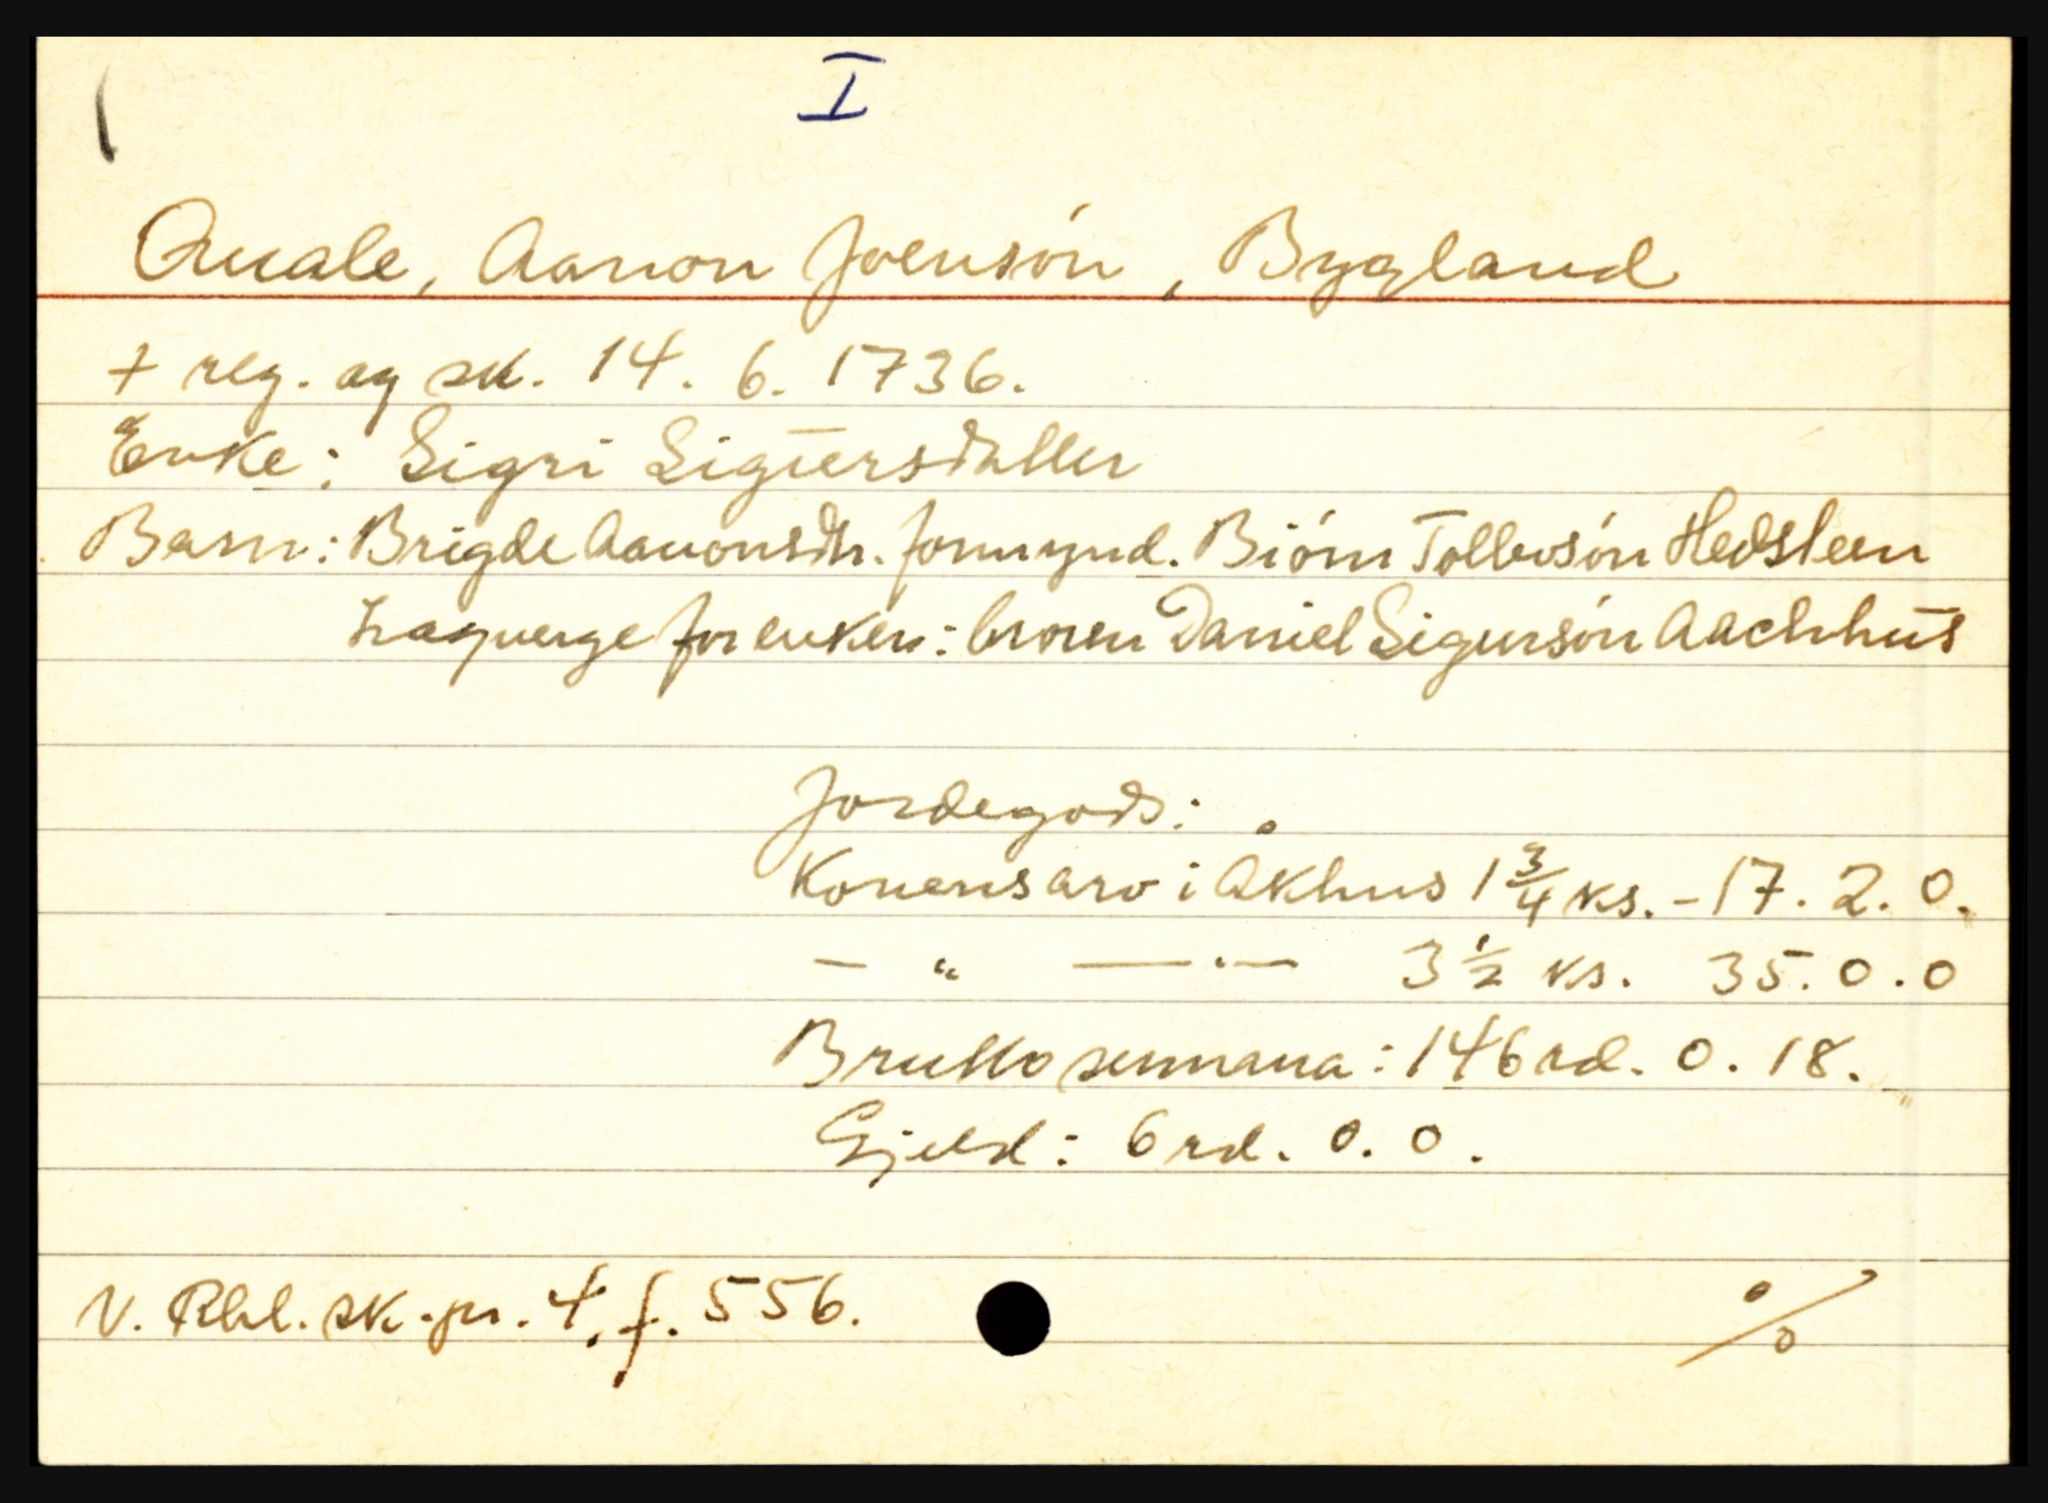 I
Quale, Aanon Joensón, Bygland
+ reg. og sk. 14. 6. 1736.
Enke: Sigri Sigūrsdatter
Barn: Brigde Aanonsdtr. formynd. Biórn Tollevsón Hedsteen
Lagverge for enken: broren Daniel Sigursón Aachhūs
Jordegods:
Konens arv i Åkhus 1 3/4 ks. - 17. 2. 0.
— " — " — 3 1/2 ks. 35. 0. 0
Brutto summa: 146 rd. 0. 18.
Gjeld: 6 rd. 0. 0.
N. Rbl. sk.pr. 4, f. 556.
%